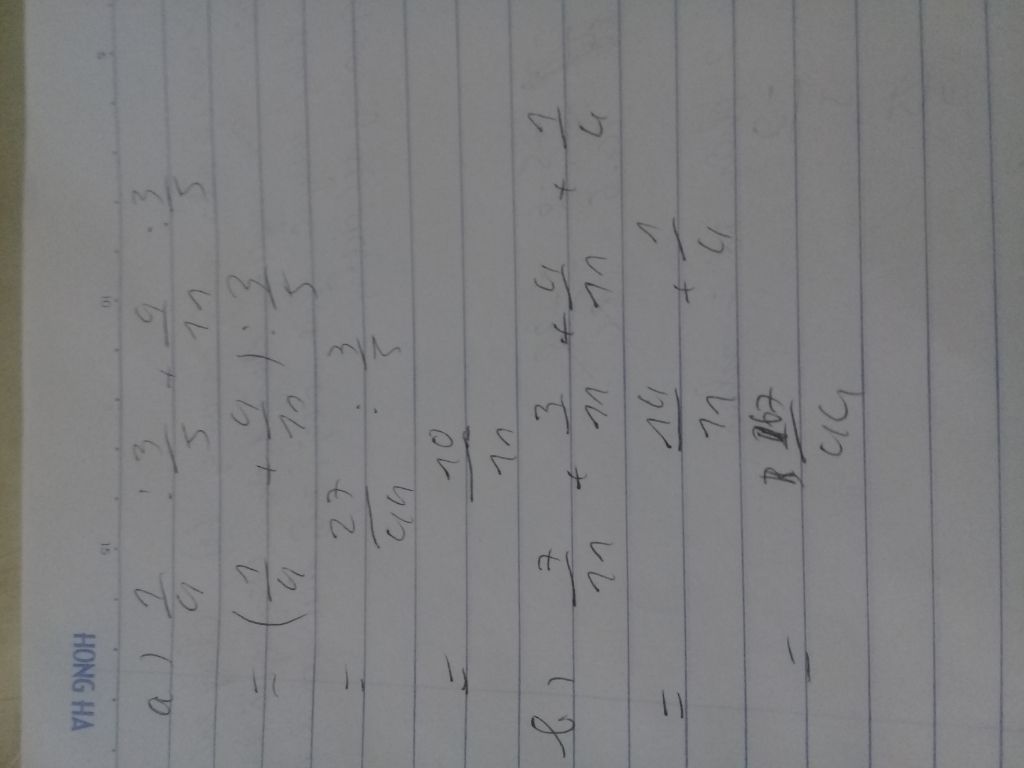 HONG HA 15 10 5
a) 1/4 : 3/5 + 4/11 : 3/5
= (1/4 + 4/11) : 3/5
= 27/44 : 3/5
= 10/11
b) 7/11 + 3/11 + 4/11 + 1/4
= 14/11 + 1/4
= 67/44